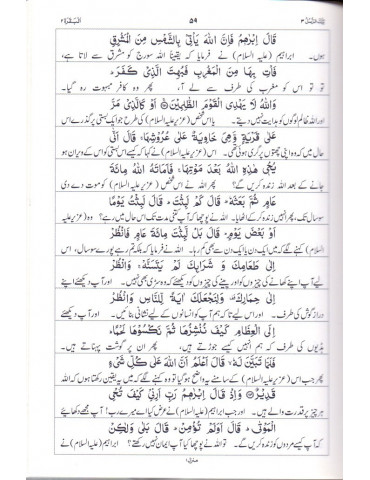 البقرة ٢
٥٩
تلك الرسل ٣
قَالَ اِبْرٰهٖمُ فَاِنَّ اللّٰهَ يَاْتِيْ بِالشَّمْسِ مِنَ الْمَشْرِقِ
ہوں۔ ابراہیم (علیہ السلام) نے فرمایا کہ یقیناً اللہ سورج کو مشرق سے لاتا ہے،
فَاْتِ بِهَا مِنَ الْمَغْرِبِ فَبُهِتَ الَّذِيْ كَفَرَ ؕ
تو تو اس کو مغرب کی طرف سے لے آ، پھر وہ کافر مبہوت رہ گیا۔
وَاللّٰهُ لَا يَهْدِي الْقَوْمَ الظّٰلِمِيْنَ ۝ اَوْ كَالَّذِيْ مَرَّ
اور اللہ ظالم لوگوں کو ہدایت نہیں دیتے۔ یا اس شخص (عزیر علیہ السلام) کی طرح جو ایک بستی پر گذرے اس
عَلٰى قَرْيَةٍ وَّهِيَ خَاوِيَةٌ عَلٰى عُرُوْشِهَا ۚ قَالَ اَنّٰى
حال میں کہ وہ اپنی چھتوں پر گری ہوئی تھی۔ اس (عزیر علیہ السلام) نے کہا کہ کیسے اس بستی کو اس کے ویران ہو
يُحْيٖ هٰذِهِ اللّٰهُ بَعْدَ مَوْتِهَا ۚ فَاَمَاتَهُ اللّٰهُ مِائَةَ
جانے کے بعد اللہ زندہ کریں گے؟ پھر اللہ نے اس شخص (عزیر علیہ السلام) کو موت دے دی
عَامٍ ثُمَّ بَعَثَهٗ ؕ قَالَ كَمْ لَبِثْتَ ؕ قَالَ لَبِثْتُ يَوْمًا
سو سال تک، پھر انہیں زندہ کر کے اٹھایا۔ اللہ نے پوچھا کہ آپ کتنی مدت تک اس حال میں رہے؟ وہ (عزیر علیہ
اَوْ بَعْضَ يَوْمٍ ؕ قَالَ بَلْ لَّبِثْتَ مِائَةَ عَامٍ فَانْظُرْ
السلام) کہنے لگے کہ میں ایک دن یا ایک دن سے بھی کم رہا۔ اللہ نے فرمایا کہ بلکہ تم رہے پورے سو سال، اس
اِلٰى طَعَامِكَ وَ شَرَابِكَ لَمْ يَتَسَنَّهْ ۚ وَانْظُرْ
لیے آپ اپنے کھانے کی چیزوں اور پینے کی چیزوں کو دیکھئے کہ وہ سڑی بھی نہیں۔ اور آپ دیکھئے اپنے
اِلٰى حِمَارِكَ وَلِنَجْعَلَكَ اٰيَةً لِّلنَّاسِ وَانْظُرْ
دراز گوش کی طرف۔ اور اس لیے تاکہ ہم آپ کو انسانوں کے لیے نشانی بنائیں۔ اور آپ دیکھئے
اِلَى الْعِظَامِ كَيْفَ نُنْشِزُهَا ثُمَّ نَكْسُوْهَا لَحْمًا ؕ
ہڈیوں کی طرف کہ ہم انہیں کیسے جوڑتے ہیں، پھر ان پر گوشت پہناتے ہیں۔
فَلَمَّا تَبَيَّنَ لَهٗ ۙ قَالَ اَعْلَمُ اَنَّ اللّٰهَ عَلٰى كُلِّ شَيْءٍ
پھر جب اس (عزیر علیہ السلام) کے سامنے یہ واضح ہو گیا تو وہ کہنے لگے کہ میں یقین رکھتا ہوں کہ اللہ
قَدِيْرٌ ۝ وَاِذْ قَالَ اِبْرٰهٖمُ رَبِّ اَرِنِيْ كَيْفَ تُحْيِ
ہر چیز پر قدرت والے ہیں۔ اور جب ابراہیم (علیہ السلام) نے عرض کیا اے میرے رب! آپ مجھے دکھائیے
الْمَوْتٰى ؕ قَالَ اَوَلَمْ تُؤْمِنْ ؕ قَالَ بَلٰى وَلٰكِنْ
کہ آپ کیسے مردوں کو زندہ کریں گے۔ تو اللہ نے پوچھا کیا آپ ایمان نہیں رکھتے؟ ابراہیم (علیہ السلام) نے
منزل ۱